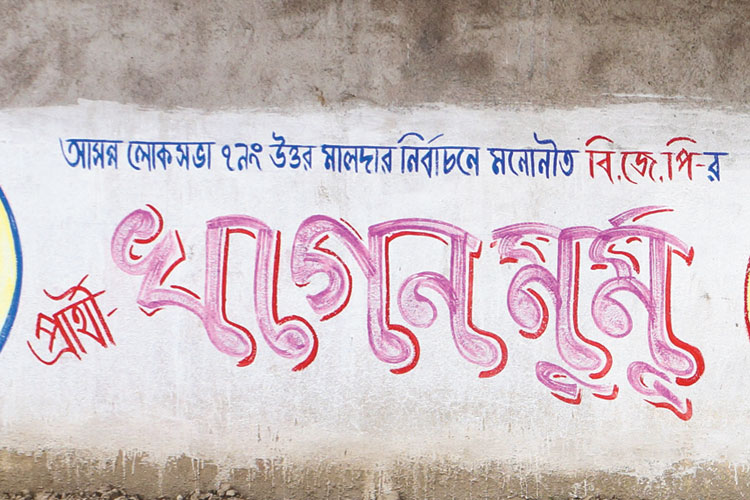 আসন্ন লোকসভা ৭নং উত্তর মালদার নির্বাচনে মনোনীত বি.জে.পি-র
প্রার্থী- খগেন মুর্মু